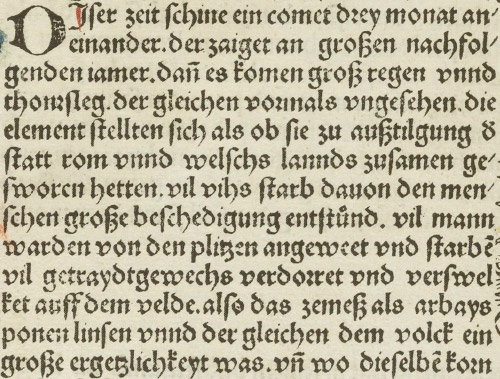 DJser zeit schine ein comet drey monat an
einander. der zaiget an großen nachfol⸗
genden iamer. dañ es komen groß regen vnnd
thonrsleg. der gleichen vormals vngesehen. die
element stellten sich als ob sie zu außtilgung d̄
statt rom vnnd welschs lannds zusamen ge⸗
sworen hetten. vil vihs starb dauon den men⸗
schen große beschedigung entstůnd. vil mann
warden von den plitzen angeweet vnd starbē
vil getraydtgewechs verdorret vnd verswel
ket auff dem velde. also das zemeß als arbays
ponen linsen vnnd der gleichen dem volck ein
große ergetzlichkeyt was. vñ wo dieselbē korn